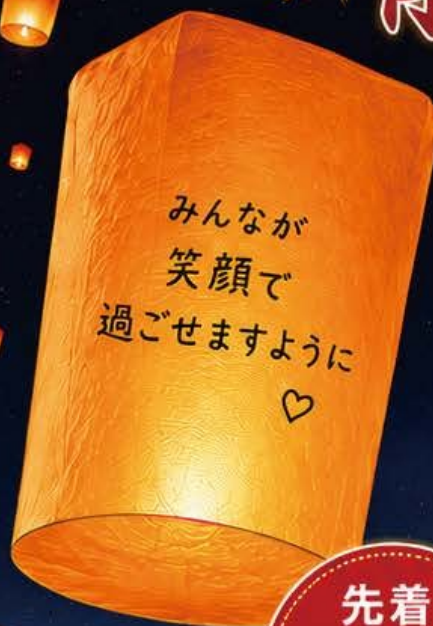 みんなが
笑顔で
過ごせますように
♡
先着